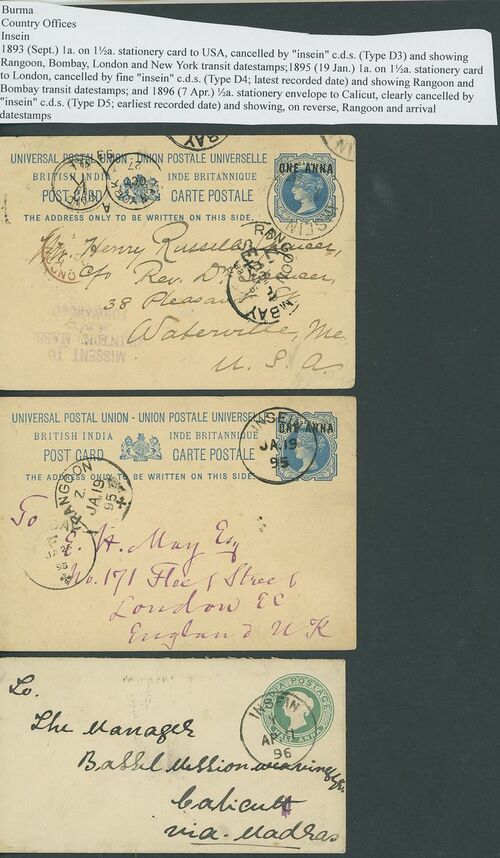 Burma
Country Offices
Insein
1893 (Sept.) 1a. on 1½a. stationery card to USA, cancelled by "insein" c.d.s. (Type D3) and showing
Rangoon, Bombay, London and New York transit datestamps;1895 (19 Jan.) 1a. on 1½a. stationery card
to London, cancelled by fine "insein" c.d.s. (Type D4; latest recorded date) and showing Rangoon and
Bombay transit datestamps; and 1896 (7 Apr.) ½a. stationery envelope to Calicut, clearly cancelled by
"insein" c.d.s. (Type D5; earliest recorded date) and showing, on reverse, Rangoon and arrival
datestamps
UNIVERSAL POSTAL UNION - UNION POSTALE UNIVERSELLE
BRITISH INDIA INDE BRITANNIQUE
POST CARD CARTE POSTALE
THE ADDRESS ONLY TO BE WRITTEN ON THIS SIDE.
ONE ANNA
INSEIN
Henry Russell Spencer,
RANGOON
c/o Rev. Dr. Spencer,
38 Pleasant St
BAY
Waterville, Me.
MISSENT TO
U. S. A.
UNIVERSAL POSTAL UNION - UNION POSTALE UNIVERSELLE
BRITISH INDIA INDE BRITANNIQUE
POST CARD CARTE POSTALE
THE ADDRESS ONLY TO BE WRITTEN ON THIS SIDE.
ONE ANNA
INSEIN
JA.19
95
RANGOON
Z.
JA.19
95
To
E. H. May Esq
No. 171 Fleet Street
London EC
England U K
INDIA POSTAGE
HALF ANNA
INSEIN
AP.
96
To.
The Manager
Bassel Mission weaving
Calicutt
via. Madras